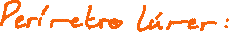 Perírekro lúrer: